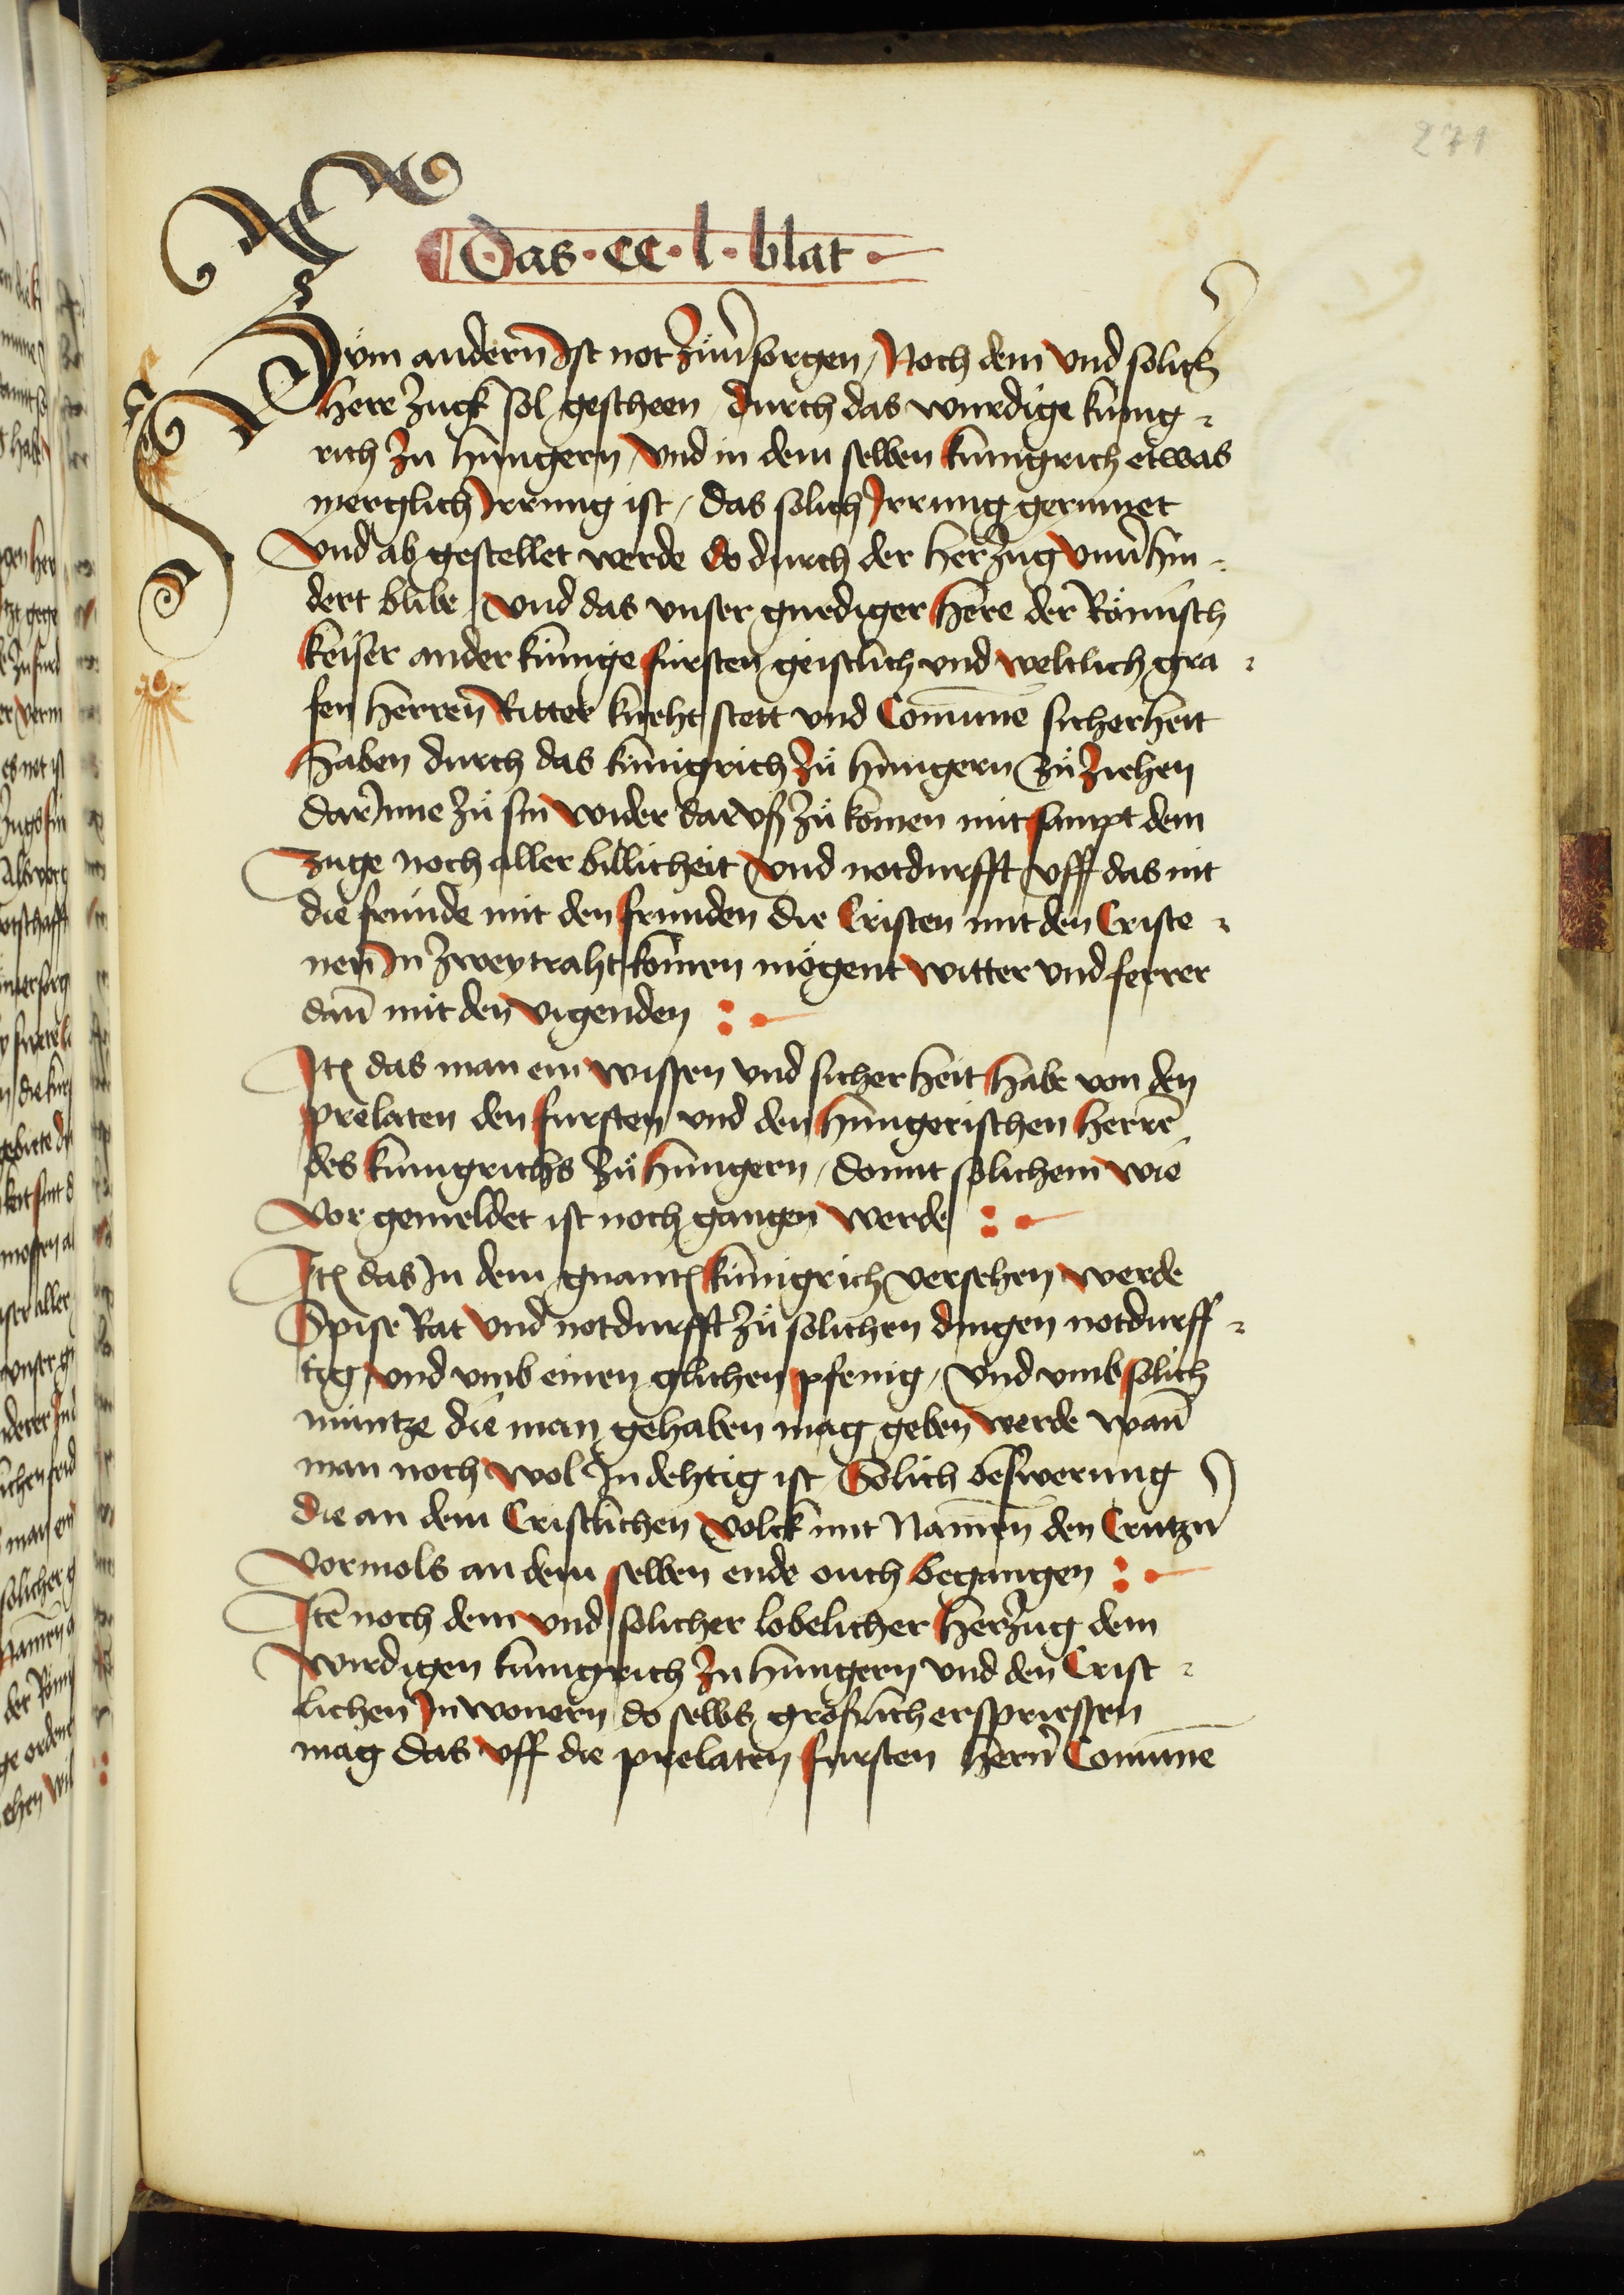 271
Das · cc · l · blat ·
Zum andern Ist not zuuersorgen / Noch dem vnd solich
here zugk sol gescheen / durch das wurdige kunig¬
rich zu hungern / vnd in dem selben kunigrich etwas
merglich Irrung ist / das solich Irrung gerumet
vnd ab gestellet werde do durch der herzug vnuerhin¬
dert blibe / vnd das vnser gnediger here der Römisch
keiser ander kunige fursten geistlich vnd weltlich gra¬
fen herren Ritter kneht stett vnd Comune sicherheit
haben durch das kunigrich zů hungern zů ziehen
dar Inne zů sin wider dar vß zů komen mit sampt dem
zuge noch aller billicheit vnd notdurfft vff das nit
die frunde mit den frunden die Cristen mit den Criste¬
nen In zweytraht komen mögent witter vnd ferrer
dann mit den vigenden :
Itē das man ein wissen vnd sicherheit habe von den
prelaten den fursten vnd den hungerischen herrē
des kunigrichs zů hungern / domit solichem wie
vor gemeldet ist noch gangen werde :
Itē das In dem gnantē kunigrich versehen werde
Spise Rat vnd notdurfft zů solichen dingen notdurff¬
tig / vnd vmb einen glichen pfenig / vnd vmb solich
muntze die man gehaben mag geben werde wann
man noch wol Indehtig ist / Solich beswerung
die an dem Cristlichen volck mit Namen den Crutzern
vormols an dem selben ende ouch begangen :
Itē noch dem vnd solicher lobelicher herzug dem
wirdigen kunigrich zu hungern vnd den Crist¬
lichen Inwonern do selbs größlich erspriessen
mag das vff die prelaten fursten hern Comune